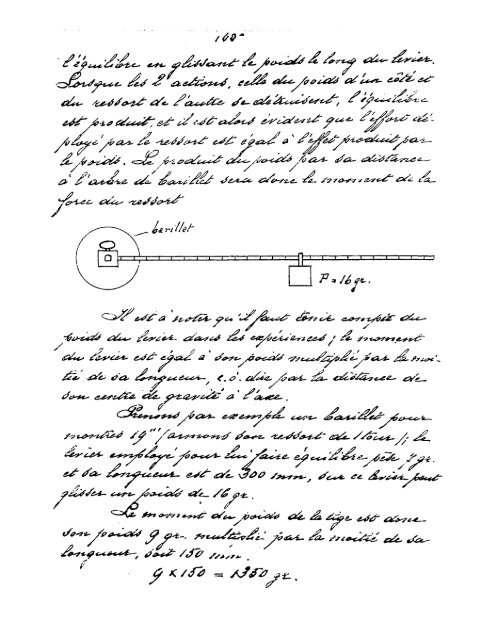 160
l'équilibre en glissant le poids le long du levier.
Lorsque les 2 actions, celle du poids d'un côté et
du ressort de l'autre se détruisent, l'équilibre
est produit, et il est alors évident que l'effort dé-
ployé par le ressort est égal à l'effet produit par
le poids. Le produit du poids par sa distance
à l'arbre de barillet sera donc le moment de la
force du ressort
barillet
P = 16 gr.
Il est à noter qu'il faut tenir compte du
poids du levier dans les expériences; le moment
du levier est égal à son poids multiplié par la moi-
tié de sa longueur, c.à.dire par la distance de
son centre de gravité à l'axe.
Prenons par exemple un barillet pour
montres 19''' / armons son ressort de 1 tour /; le
levier employé pour lui faire équilibre pèse 9 gr.
et sa longueur est de 300 mm, sur ce levier peut
glisser un poids de 16 gr.
Le moment du poids de la tige est donc
son poids 9 gr. multiplié par la moitié de sa
longueur, soit 150 mm.
9 x 150 = 1350 gr.